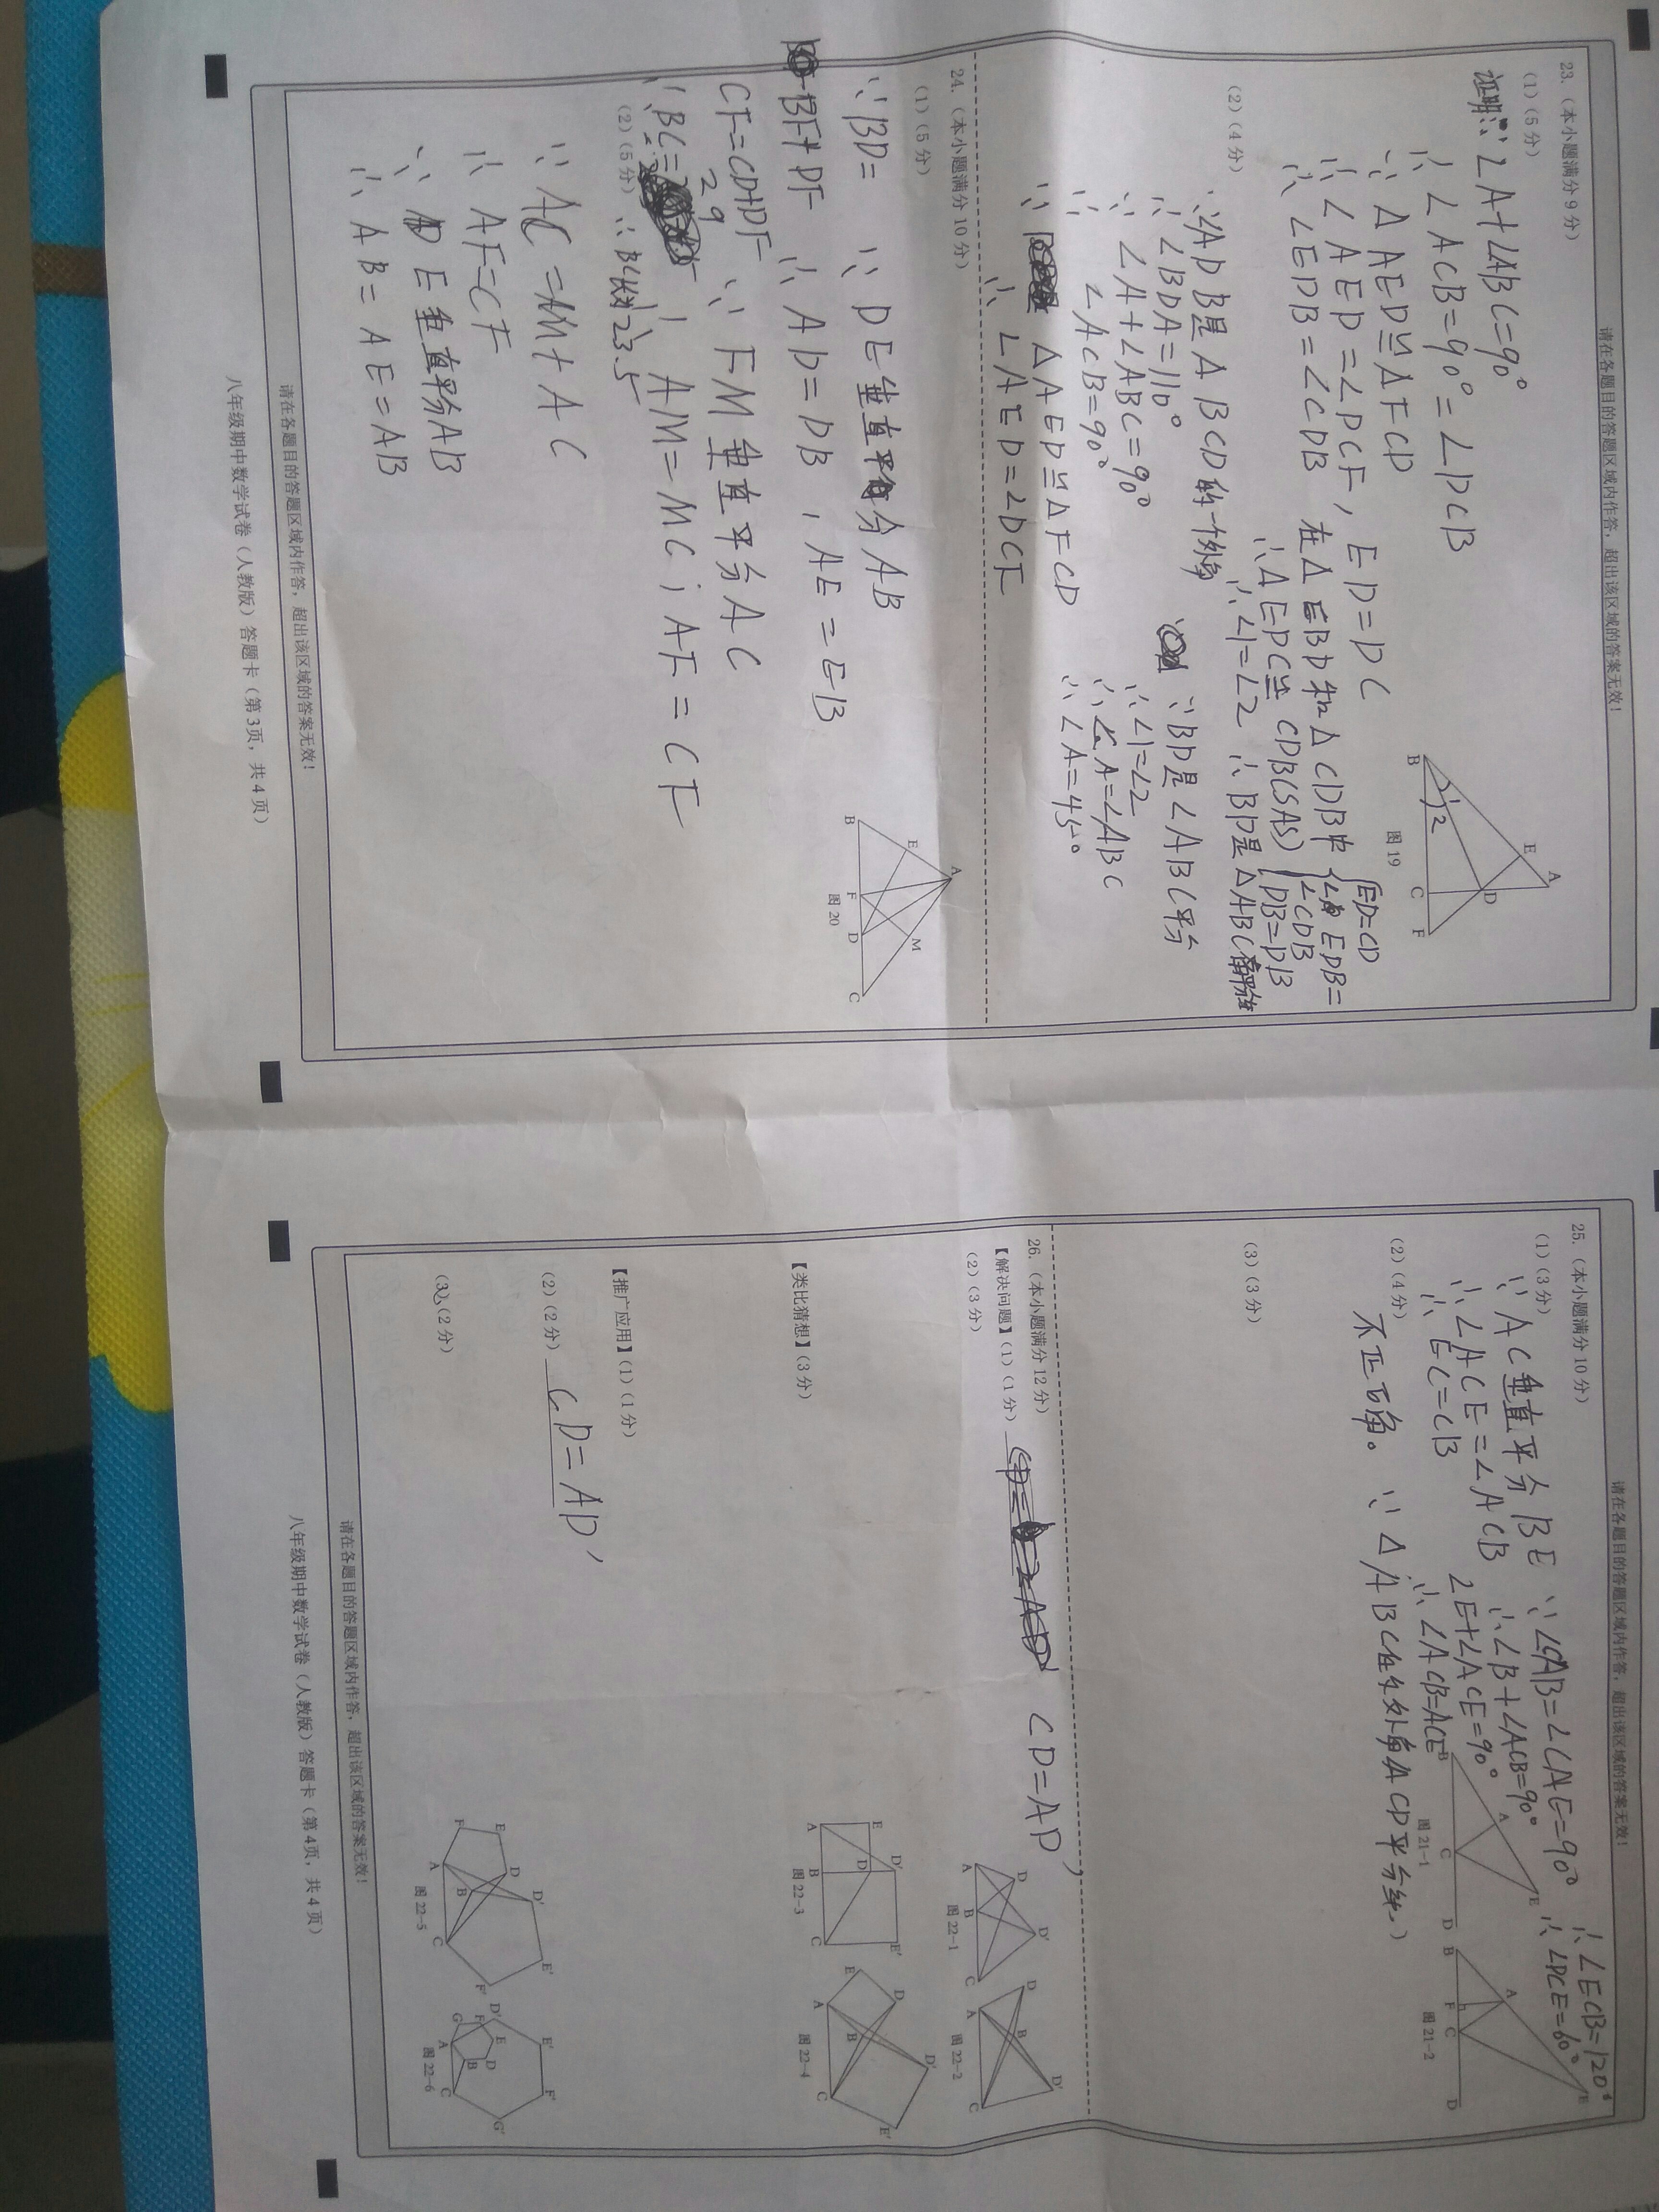 请在各题目的答题区域内作答，超出该区域的答案无效！
23.（本小题满分9分）
（1）（5分）
证明:∵∠A+∠ABC=90°
∴∠ACB=90°=∠DCB
∵△AED≌△FCD
∴∠AED=∠DCF, ED=DC
∴∠EDB=∠CDB 在△EBD和△CDB中
ED=CD
∠EDB=
∠CDB
DB=DB
∴△EDC≌CDB(SAS)
∴∠1=∠2 ∴BD是△ABC
B
1
2
E
A
D
C
F
图19
（2）（4分）
∵∠ADB是△BCD的一个外角
∴∠BDA=110°
∵∠A+∠ABC=90°
∴∠ACB=90°
∵△AED≌△FCD
∴∠AED=∠DCF
∵BD是∠ABC平分
∴∠1=∠2
∴∠A=∠ABC
∴∠A=45°
24.（本小题满分10分）
（1）（5分）
∵BD=
BF+DF
CF=CD+DF
29
∵BC=
∵DE垂直平分AB
∴AD=DB, AE=EB
∵FM垂直平分AC
∴AM=MC; AF=CF
∴BC 23.5
B
E
A
F
D
M
C
图20
（2）（5分）
∵AC=M+AC
∴AF=CF
∵DE垂直平分AB
∴AB=AE=AB
请在各题目的答题区域内作答，超出该区域的答案无效！
八年级期中数学试卷（人教版）答题卡（第3页，共4页）
请在各题目的答题区域内作答，超出该区域的答案无效！
25.（本小题满分10分）
（1）（3分）
∵AC垂直平分BE
∴∠ACE=∠ACB
∴EC=CB
∵∠CAB=∠CAE=90°
∴∠B+∠ACB=90°
∠E+∠ACE=90°
∴∠ACB=ACE
∴∠ECB=120°
∴∠DCE=60°
B
A
E
C
D
图21-1
B
A
E
F
C
D
图21-2
（2）（4分）
不正百角。∵△ABC在外角ACD平分线
（3）（3分）
26.（本小题满分12分）
【解决问题】（1）（1分） CD=AD'
（2）（3分）
A
D
B
D'
C
图22-1
D
A
B
D'
C
图22-2
【类比猜想】（3分）
E
A
D
B
D'
C
E'
图22-3
E
A
D
B
D'
C
E'
图22-4
【推广应用】（1）（1分）
（2）（2分） CD=AD'
（3）（2分）
F
E
A
D
B
D'
C
E'
F'
图22-5
G
F
D'
E
D
A
B
C
E'
F'
G'
图22-6
请在各题目的答题区域内作答，超出该区域的答案无效！
八年级期中数学试卷（人教版）答题卡（第4页，共4页）